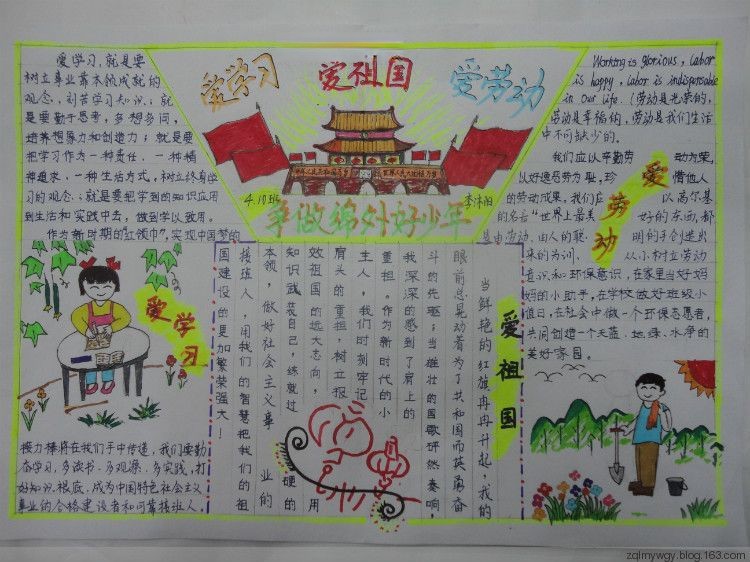 爱学习
爱祖国
爱劳动
中华人民共和国万岁
世界人民大团结万岁
4.10班
李沐阳
争做绵外好少年
爱学习，就是要
树立事业靠本领成就的
观念，刻苦学习知识；就
是要勤于思考，多想多问，
培养想象力和创造力；就是要
把学习作为一种责任、一种精
神追求、一种生活方式，树立终身学
习的观念；就是要把学到的知识应用
到生活和实践中去，做到学以致用。
作为新时期的“红领巾”，实现中国梦的
爱学习
接力棒将在我们手中传递，我们要勤
奋学习，多读书、多观源、多实践，打
好知识根底，成为中国特色社会主义
事业的合格建设者和可靠接班人。
爱祖国
当鲜艳的红旗冉冉升起，我的
眼前总晃动着为了共和国而英勇奋
斗的先驱；当雄壮的国歌砰然奏响，
我深深的感到了肩上的
重担。作为新时代的小
主人，我们时刻牢记
肩头的重担，树立报
效祖国的远大志向，用
知识武装自己，练就过硬的
本领，做好社会主义事业的
接班人，用我们的智慧把我们的祖
国建设的更加繁荣强大！
Working is glorious, labor
is happy, labor is indispensable
in Our life.（劳动是光荣的，
劳动是幸福的，劳动是我们生活
中不可缺少的。
爱劳动
我们应以辛勤劳动为荣，
以好逸恶劳为耻，珍惜他人
的劳动成果，我们应以高尔基
的名言“世界上最美好的东西，都
是由劳动、由人的聪明的手创造出
来的”为训，从小树立劳动
意识和环保意识，在家里当好妈
妈的小助手，在学校做好班级小
值日，在社会中做一个环保志愿者，
共同创造一个天蓝、地绿、水净的
美好家园。
zqlmywgy.blog.163.com